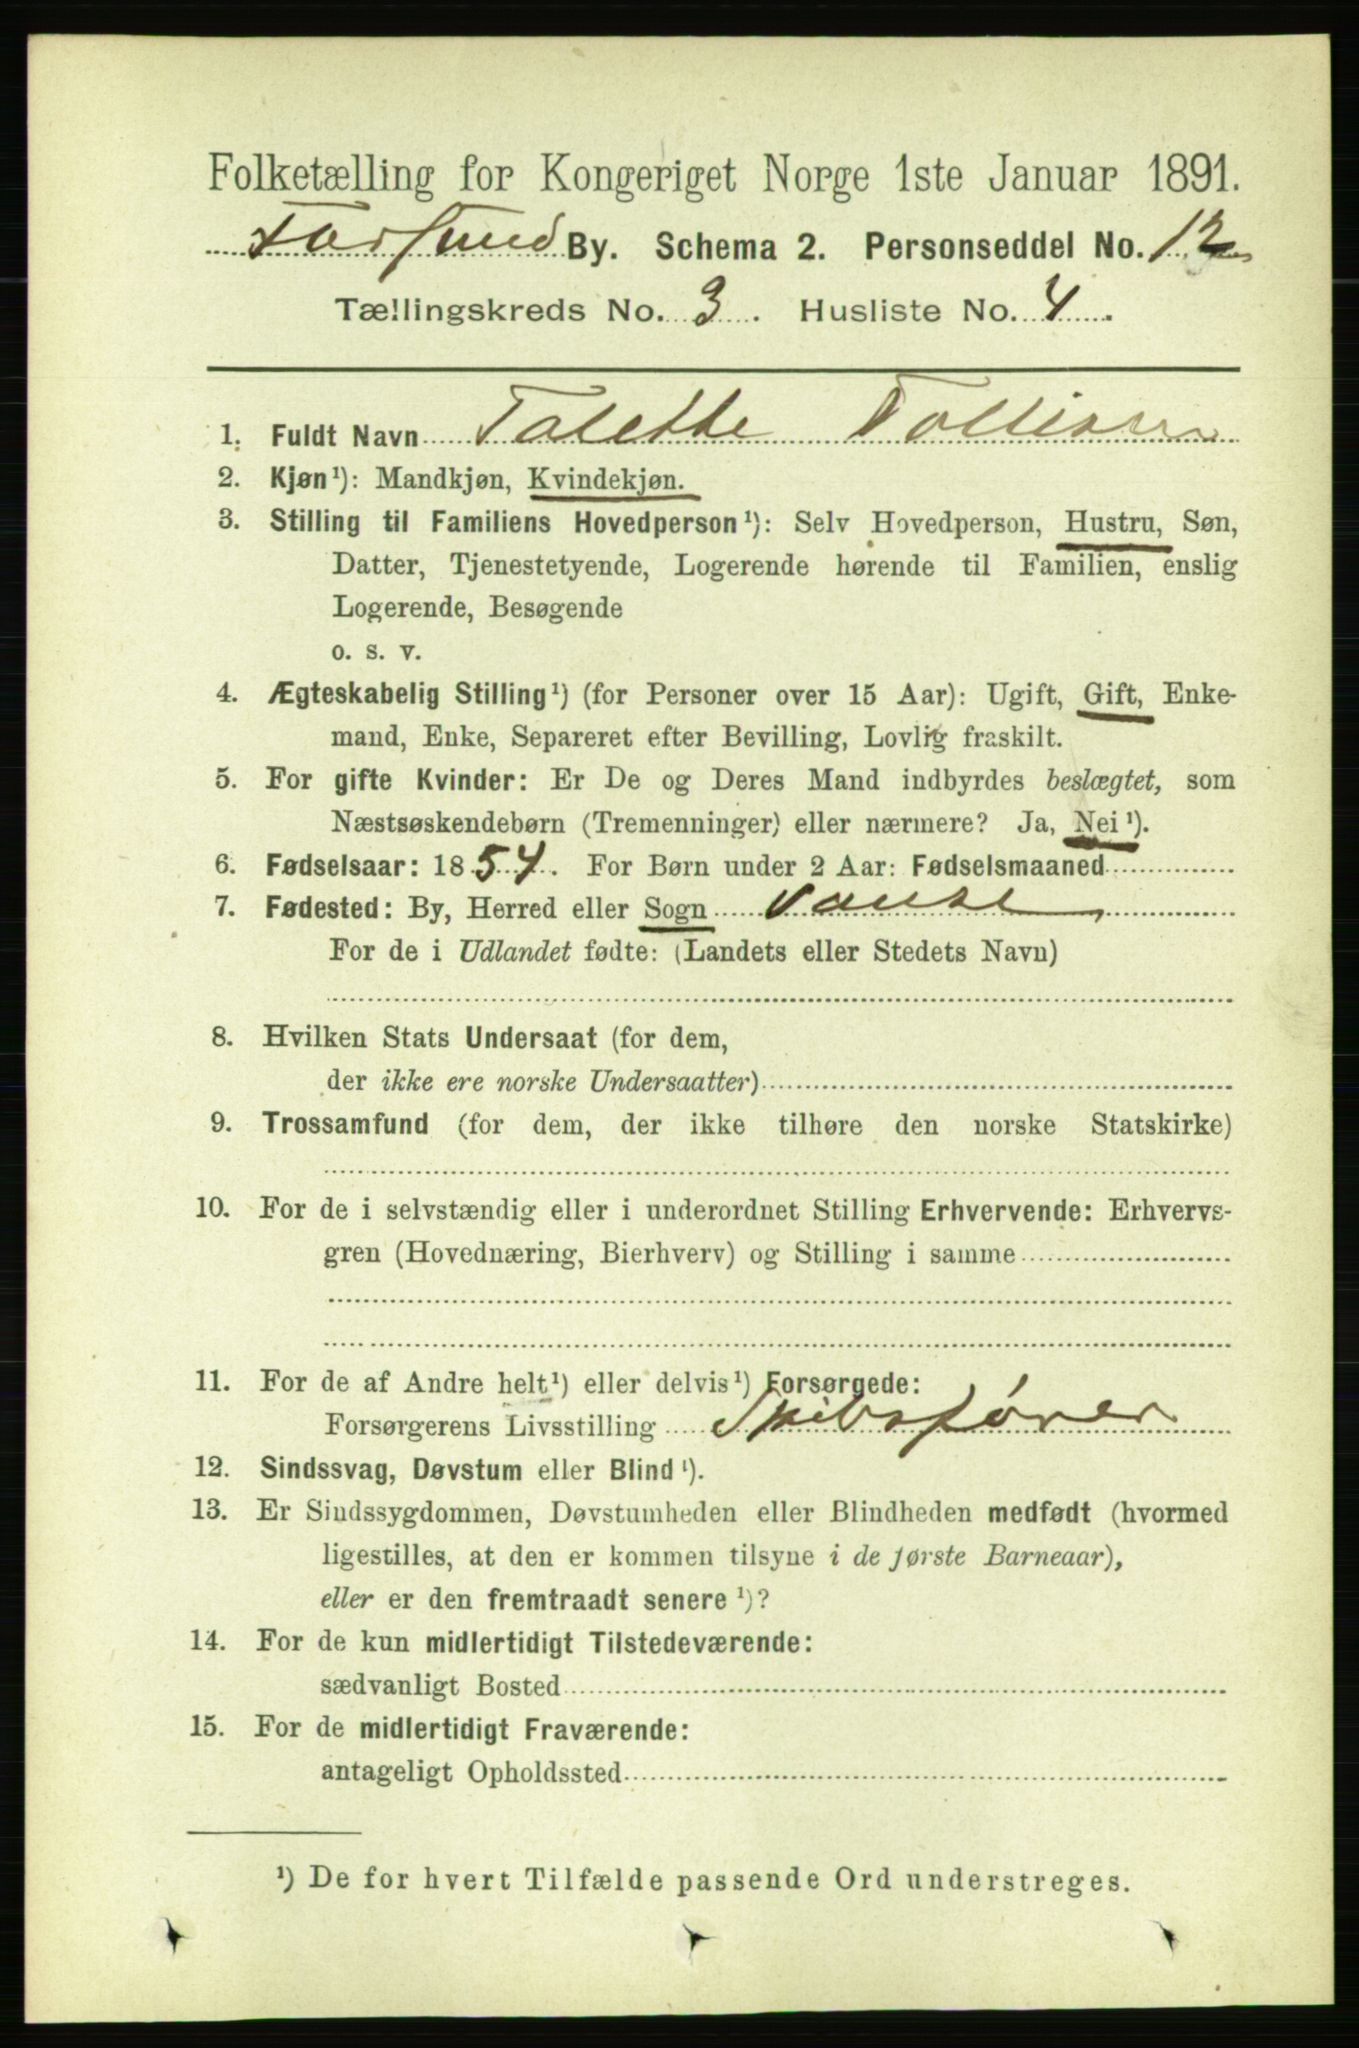 Folketælling for Kongeriget Norge 1ste Januar 1891.
Farsund By. Schema 2. Personseddel No. 12
Tællingskreds No. 3. Husliste No. 4.
1. Fuldt Navn Talette Tallisen
2. Kjøn¹): Mandkjøn, Kvindekjøn.
3. Stilling til Familiens Hovedperson¹): Selv Hovedperson, Hustru, Søn,
Datter, Tjenestetyende, Logerende hørende til Familien, enslig
Logerende, Besøgende
o. s. v.
4. Ægteskabelig Stilling¹) (for Personer over 15 Aar): Ugift, Gift, Enke-
mand, Enke, Separeret efter Bevilling, Lovlig fraskilt.
5. For gifte Kvinder: Er De og Deres Mand indbyrdes beslægtet, som
Næstsøskendebørn (Tremenninger) eller nærmere? Ja, Nei¹).
6. Fødselsaar: 1854. For Børn under 2 Aar: Fødselsmaaned
7. Fødested: By, Herred eller Sogn Vanse
For de i Udlandet fødte: (Landets eller Stedets Navn)
8. Hvilken Stats Undersaat (for dem,
der ikke ere norske Undersaatter)
9. Trossamfund (for dem, der ikke tilhøre den norske Statskirke)
10. For de i selvstændig eller i underordnet Stilling Erhvervende: Erhvervs-
gren (Hovednæring, Bierhverv) og Stilling i samme
11. For de af Andre helt¹) eller delvis¹) Forsørgede:
Forsørgerens Livsstilling Skibsfører
12. Sindssvag, Døvstum eller Blind¹).
13. Er Sindssygdommen, Døvstumheden eller Blindheden medfødt (hvormed
ligestilles, at den er kommen tilsyne i de første Barneaar),
eller er den fremtraadt senere¹)?
14. For de kun midlertidigt Tilstedeværende:
sædvanligt Bosted
15. For de midlertidigt Fraværende:
antageligt Opholdssted
¹) De for hvert Tilfælde passende Ord understreges.